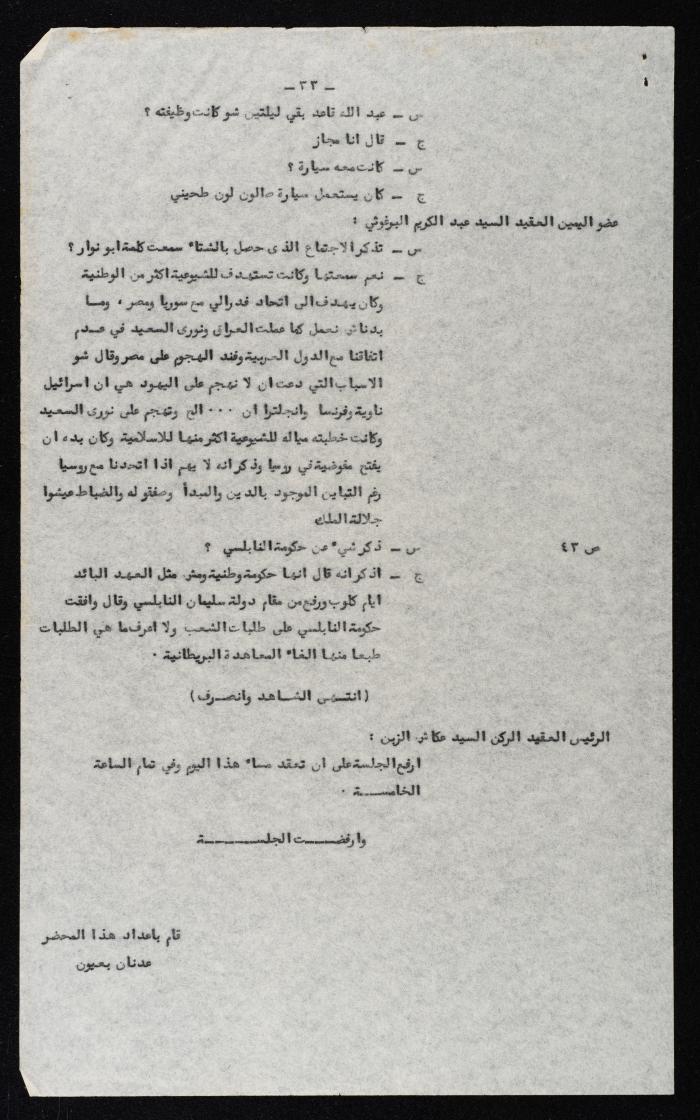 ـ ٣٣ ـ
س ـ عبد الله قاعد بقي ليلتين شو كانت وظيفته ؟
ج ـ قال انا مجاز
س ـ كانت معه سيارة ؟
ج ـ كان يستعمل سيارة صالون لون طحيني
عضو اليمين العقيد السيد عبد الكريم البرغوثي :
س ـ تذكر الاجتماع الذى حصل بالشتاء سمعت كلمة ابو نوار ؟
ج ـ نعم سمعتها وكانت تستهدف للشيوعية اكثر من الوطنية
وكان يهدف الى اتحاد فدرالي مع سوريا ومصر ، وما
بدناش نعمل كما عملت العراق ونورى السعيد في عدم
اتفاقنا مع الدول العربية وعند الهجوم على مصر وقال شو
الاسباب التي دعت ان لا نهجم على اليهود هي ان اسرائيل
ناوية وفرنسا وانجلترا ان ٠٠٠ الخ وتهجم على نورى السعيد
وكانت خطبته مياله للشيوعية اكثر منها للاسلامية وكان بده ان
يفتح مفوضية في روسيا وذكر انه لا يهم اذا اتحدنا مع روسيا
رغم التباين الموجود بالدين والمبدأ وصفقو له والضباط عيشوا
جلالة الملك
س ـ ذكر شيء عن حكومة النابلسي ؟ ص ٤٣
ج ـ اذكر انه قال انها حكومة وطنية ومش مثل العهد البائد
ايام كلوب ورفع من مقام دولة سليمان النابلسي وقال وافقت
حكومة النابلسي على طلبات الشعب ولا اعرف ما هي الطلبات
طبعا منها الغاء المعاهدة البريطانية ٠
(انتهى الشاهد وانصرف)
الرئيس العقيد الركن السيد عكاش الزبن :
ارفع الجلسة على ان تعقد مساء هذا اليوم وفي تمام الساعة
الخامسة ٠
وارفضت الجلسة
قام باعداد هذا المحضر
عدنان بعيون